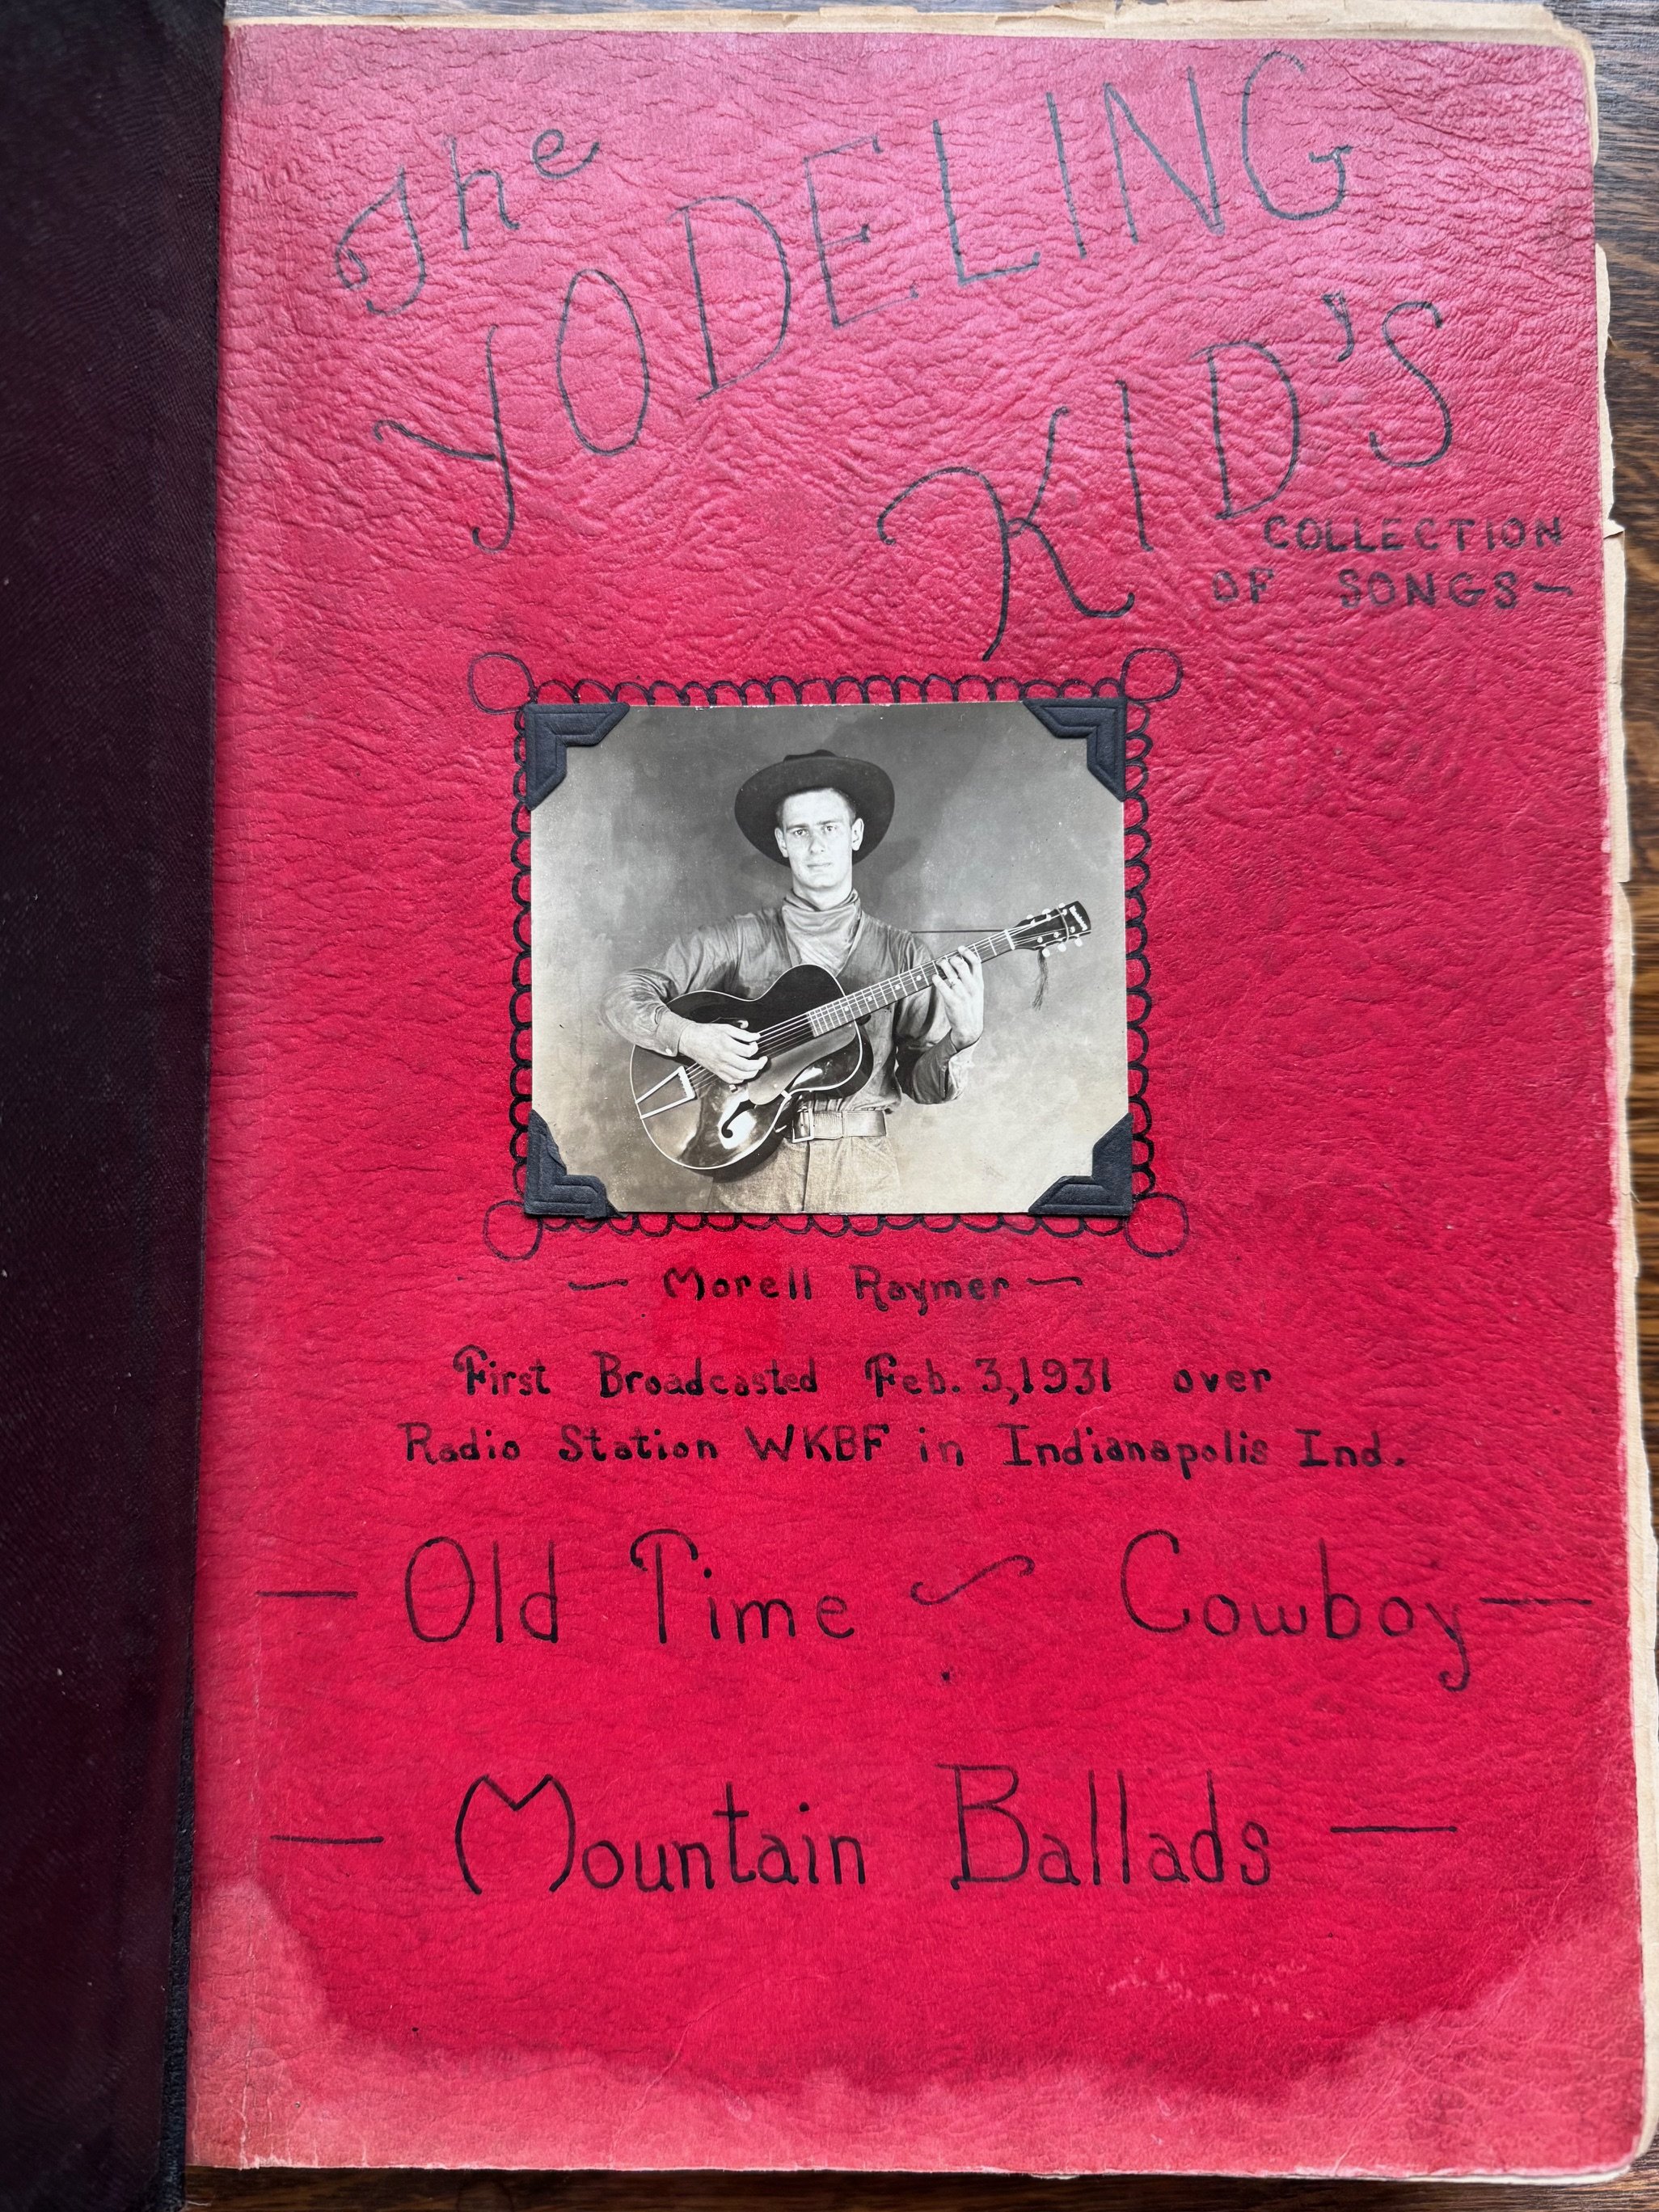 The
YODELING
KID'S
COLLECTION
OF SONGS—
— Morell Raymer —
First Broadcasted Feb. 3, 1931 over
Radio Station WKBF in Indianapolis Ind.
— Old Time ~ Cowboy —
— Mountain Ballads —